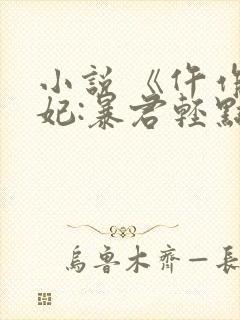 小說《仵作
妃:暴君輕點
烏魯木齊一長